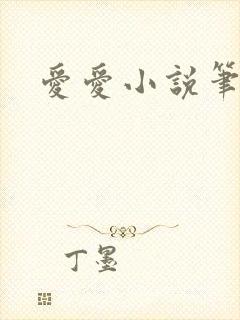 愛愛小説筆
丁墨